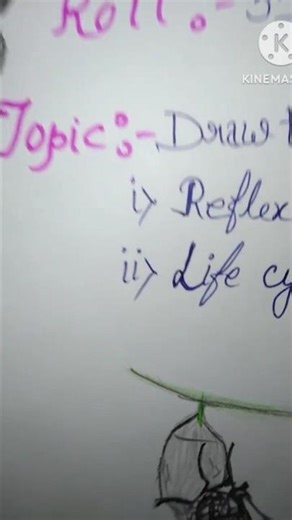 Roll :-
KINEMAS
Topic :- Draw
i) Reflex
ii) Life cy